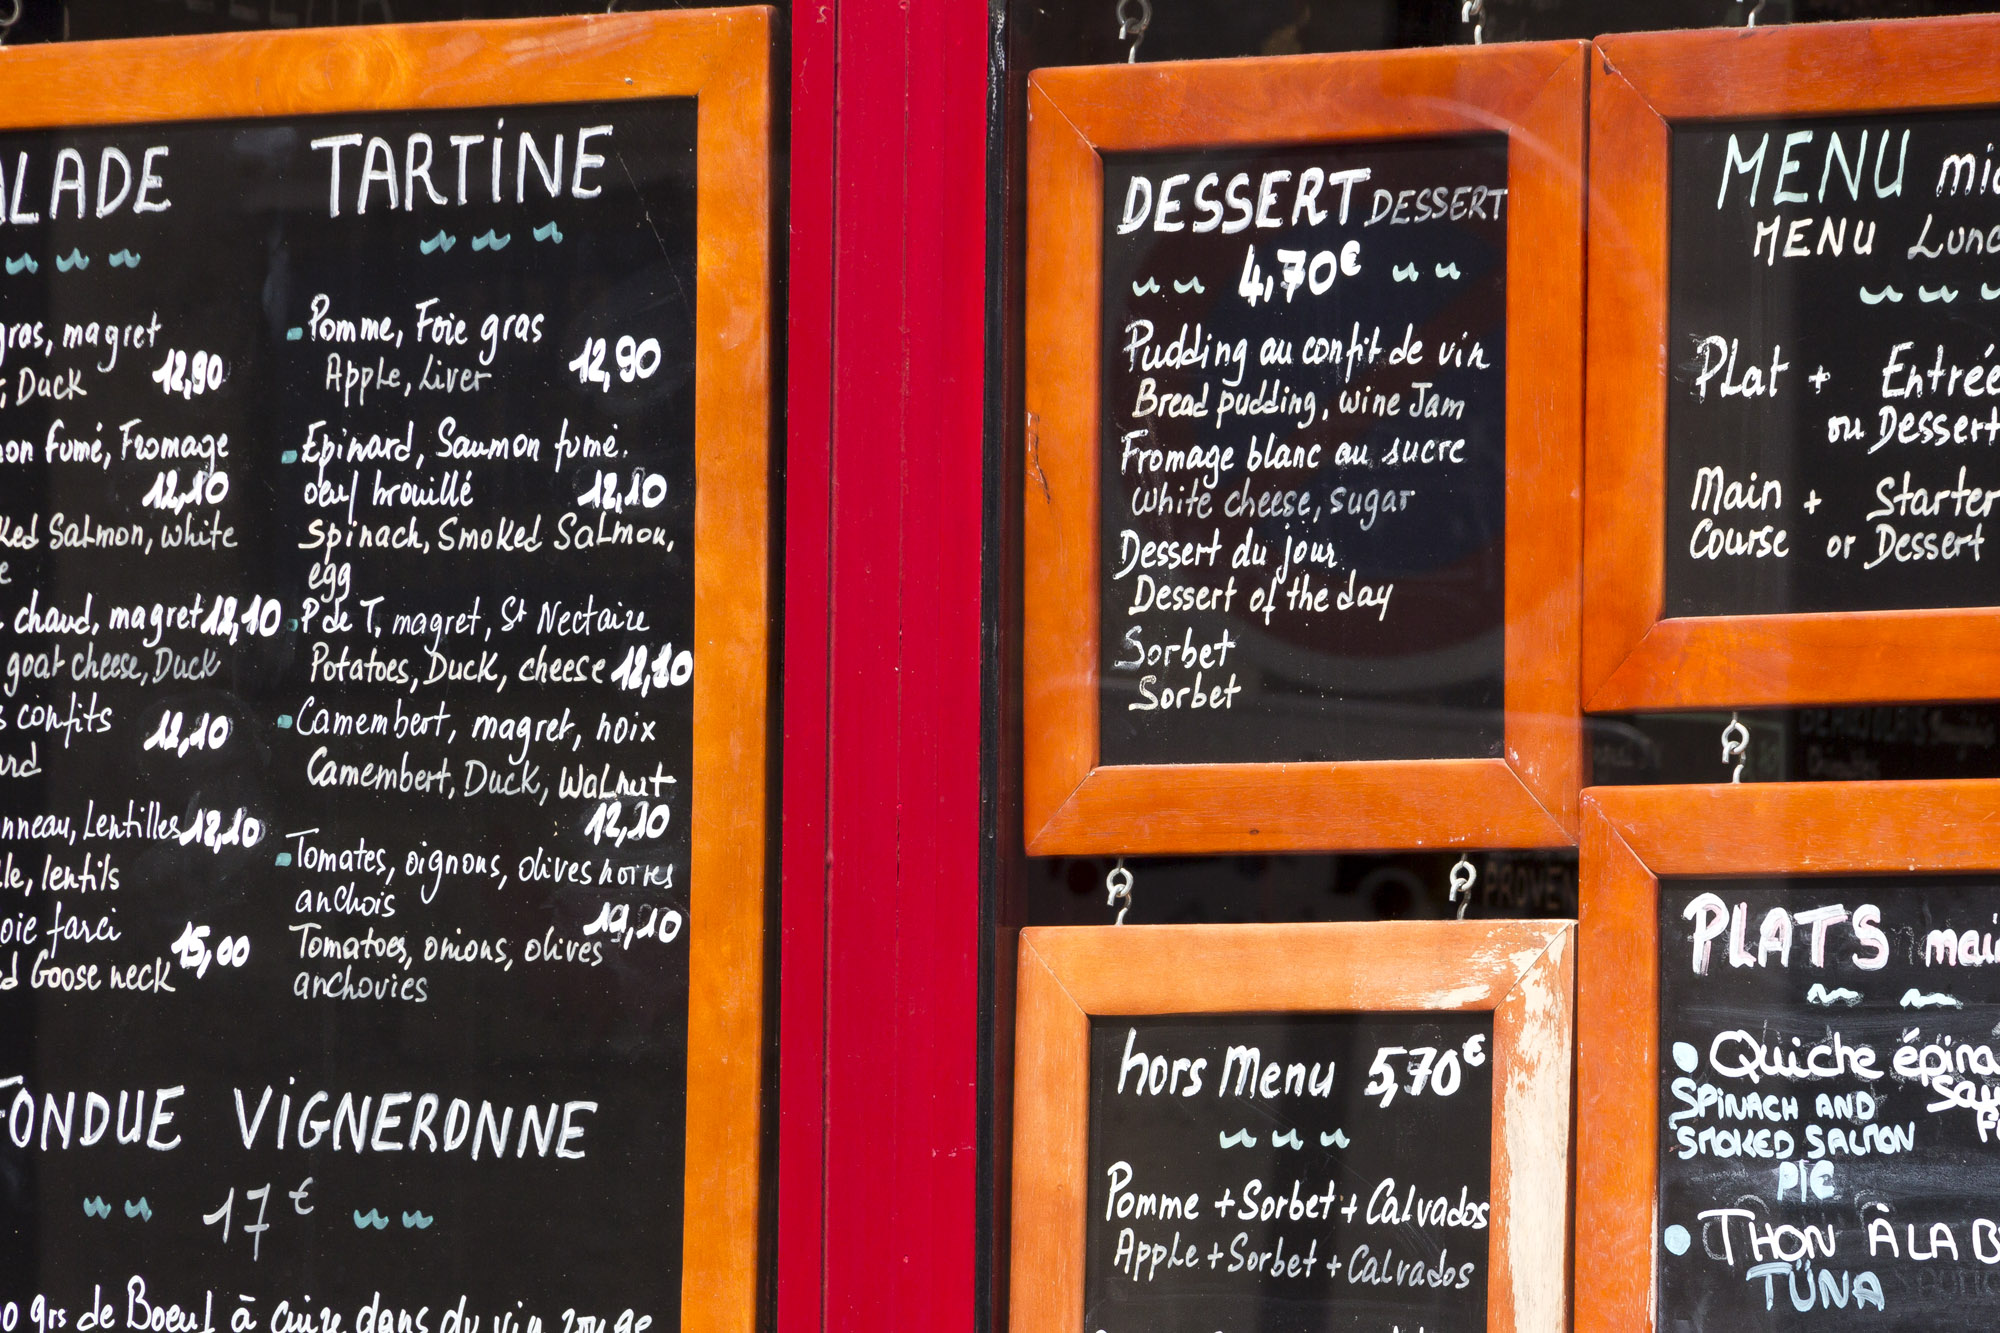 ALADE
gras, magret
, Duck 12,90
on fumé, Fromage
12,10
ked Salmon, white
e
chaud, magret 12,10
goat cheese, Duck
s confits
12,10
ard
nneau, Lentilles 12,10
le, lentils
oie farci
15,00
d Goose neck
TARTINE
Pomme, Foie gras
12,90
Apple, Liver
Epinard, Saumon fumé.
oeuf brouillé 12,10
Spinach, Smoked Salmon,
egg
P de T, magret, St Nectaire
Potatoes, Duck, cheese 12,10
Camembert, magret, noix
Camembert, Duck, Walnut
12,10
Tomates, oignons, olives noires
anchois
Tomatoes, onions, olives
anchovies
FONDUE VIGNERONNE
17€
0 grs de Boeuf à cuire dans du vin rouge
DESSERT DESSERT
4,70€
Pudding au confit de vin
Bread pudding, wine Jam
Fromage blanc au sucre
white cheese, sugar
Dessert du jour
Dessert of the day
Sorbet
Sorbet
hors Menu 5,70€
Pomme + Sorbet + Calvados
Apple + Sorbet + Calvados
MENU mid
MENU Lunc
Plat + Entrée
ou Dessert
Main + Starter
Course or Dessert
PLATS main
Quiche épina
SPINACH AND
SMOKED SALMON
PIE
THON À LA B
TÜNA